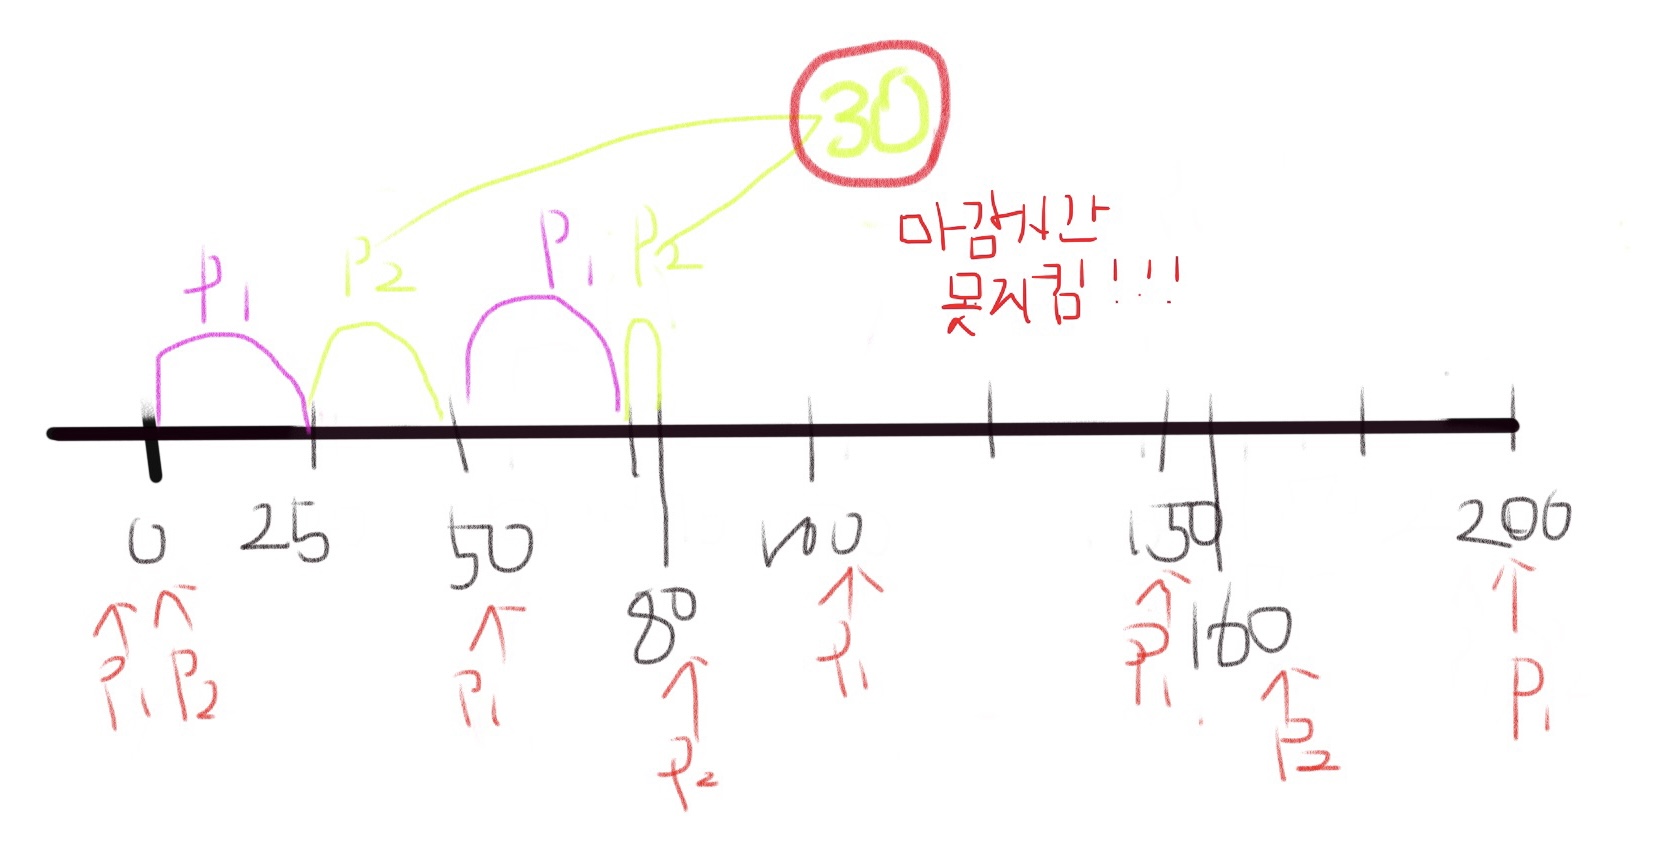 30
마감시간
못지킴!!!
P1
P2
P1
P2
0
25
50
80
100
150
160
200
P1
P2
P1
P2
P1
P1
P2
P1